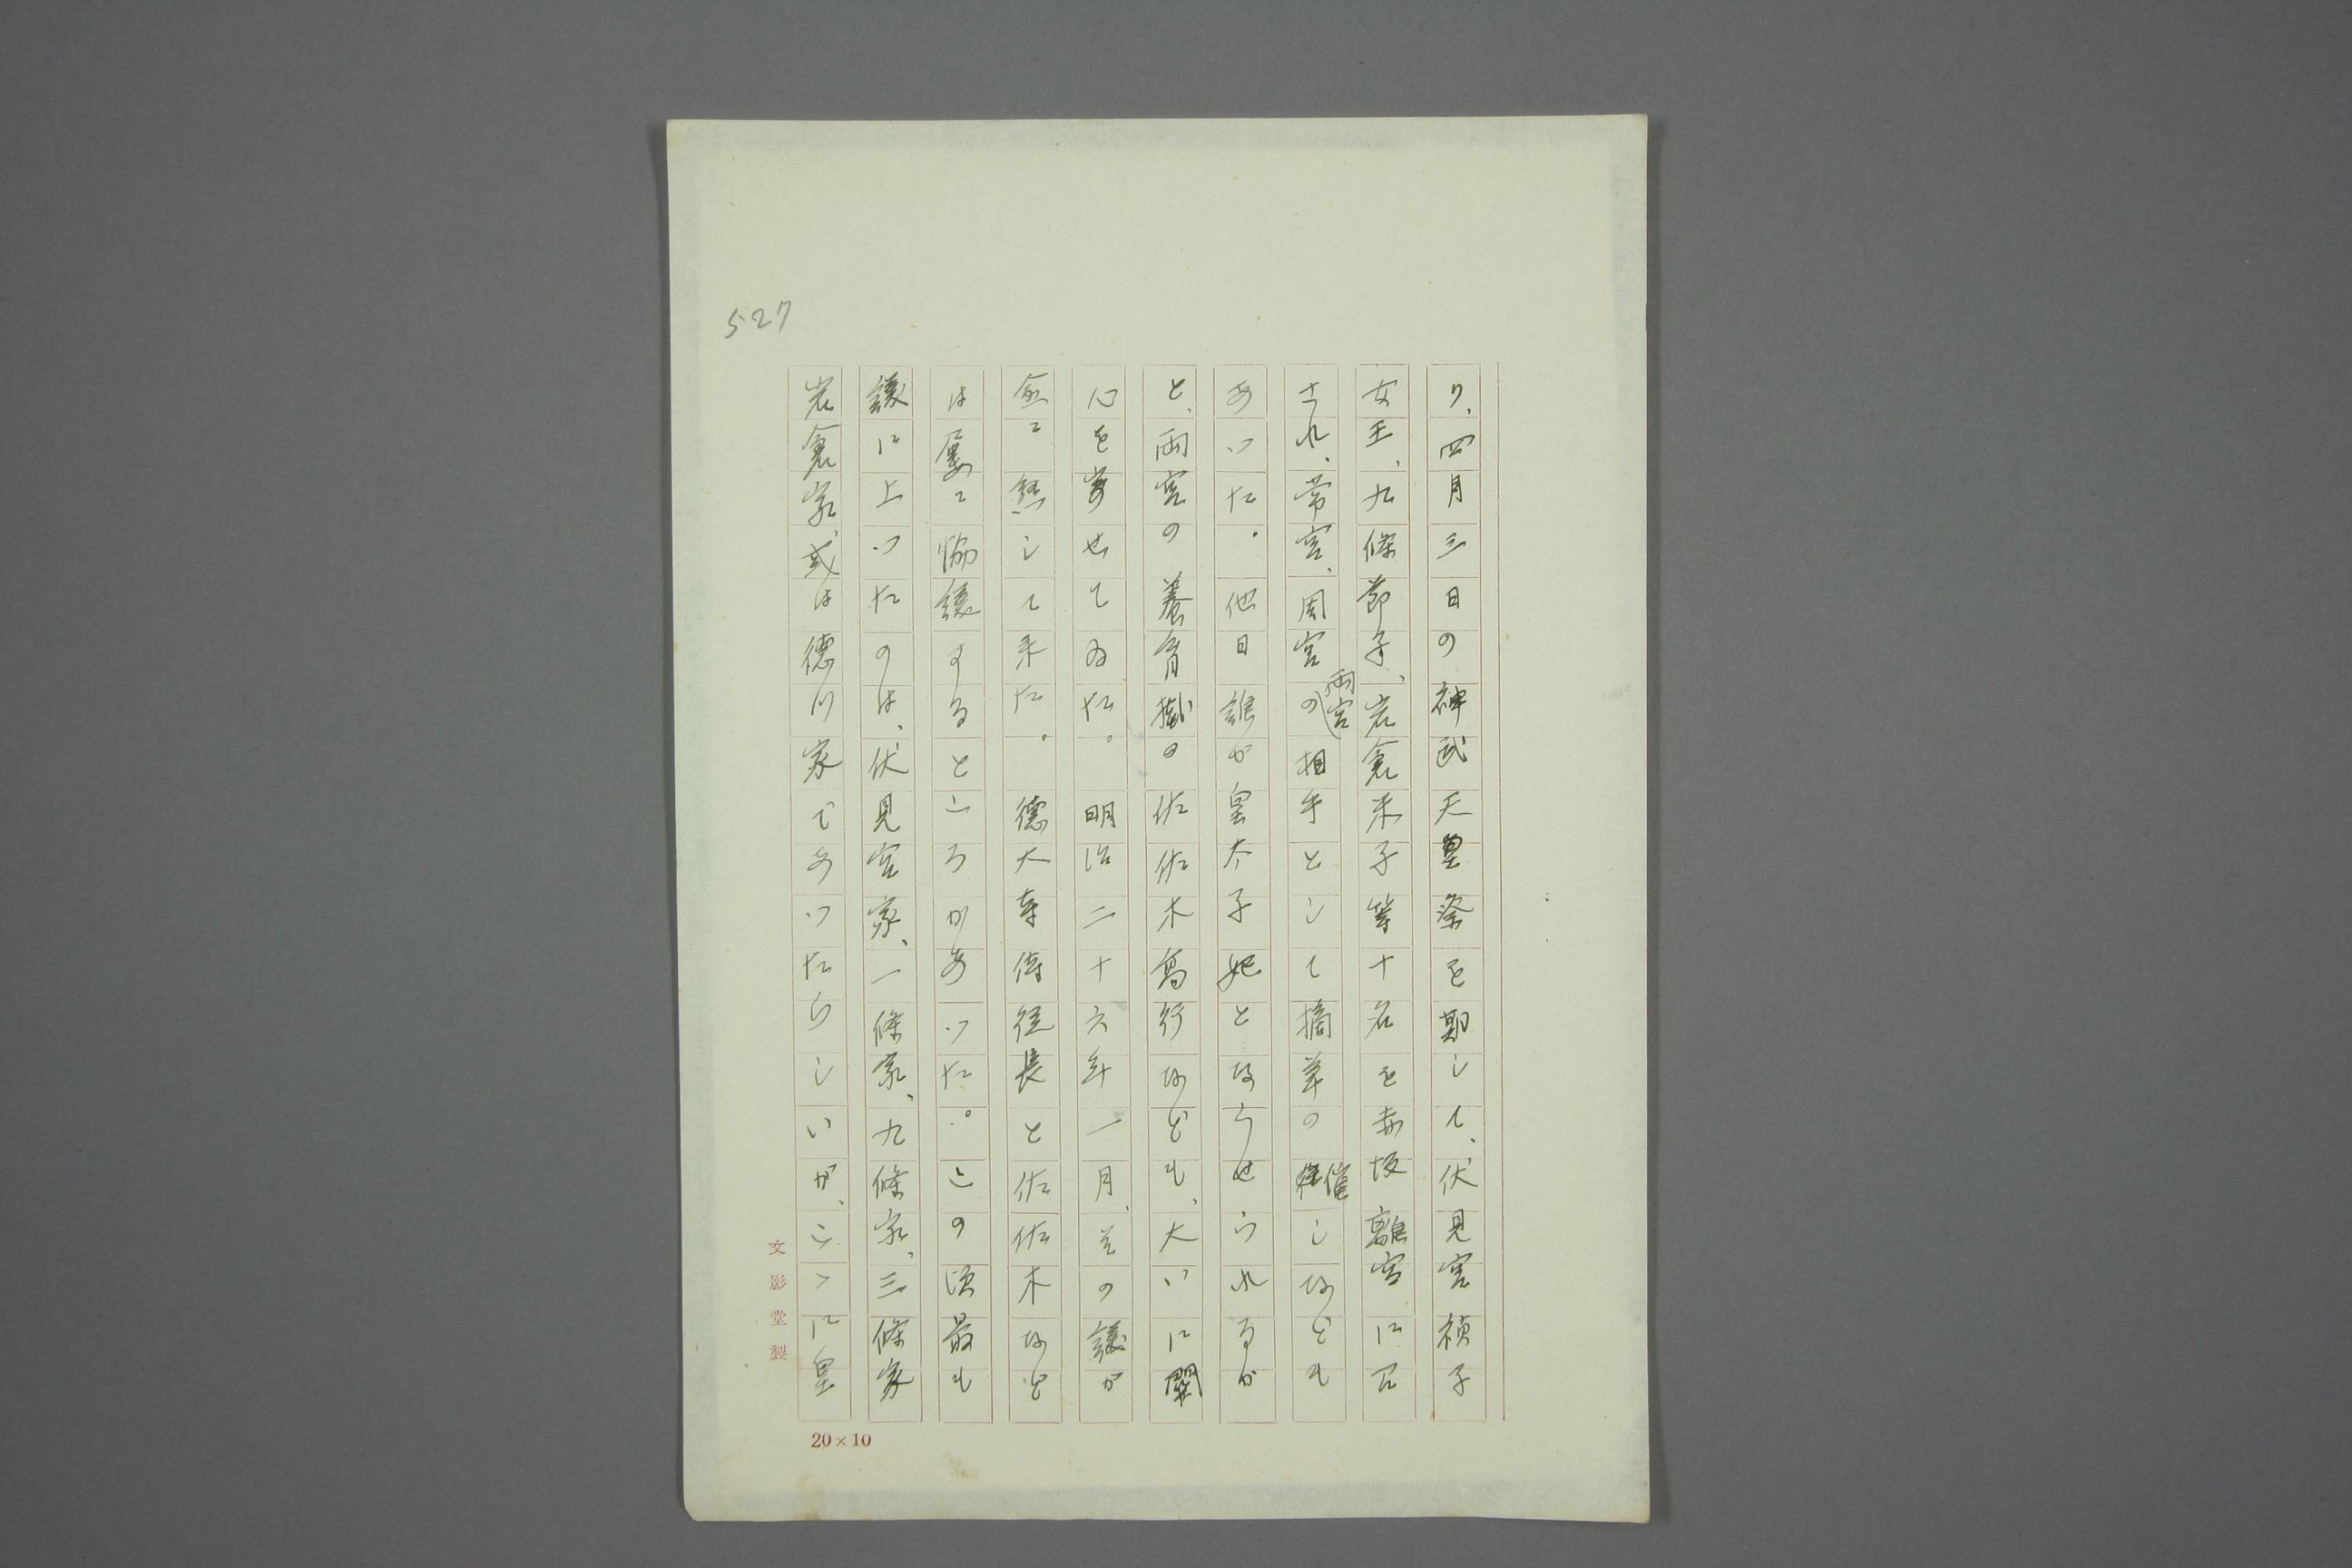 527
り、四月三日の神武天皇祭を期して、伏見宮禎子
女王、九條節子、岩倉米子等十名を赤坂離宮に召
され、常宮、周宮の(両宮)相手として摘草の催しなども
あつた。他日誰が皇太子妃とならせられるか
と、両宮の養育掛の佐佐木高行なども、大いに関
心を寄せてゐた。明治二十六年一月、その議が
愈〻熟して来た。徳大寺侍従長と佐佐木など
は屡〻協議するところがあつた。この頃最も
議に上つたのは、伏見宮家、一條家、九條家、三條家
岩倉家、或は徳川家であつたらしいが、こゝに皇
文影堂製
20×10